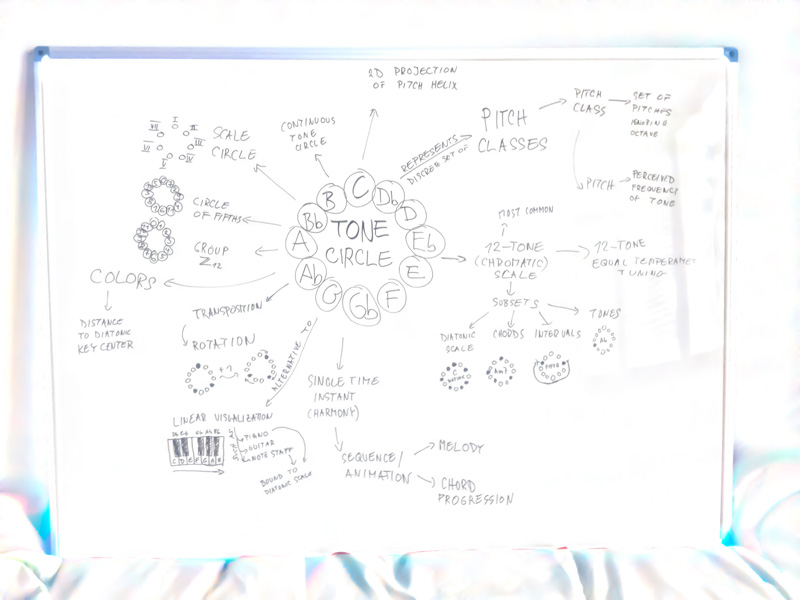 2D PROJECTION
OF PITCH HELIX
CONTINUOUS
TONE
CIRCLE
SCALE
CIRCLE
I
II
IV
V
VI
VII
CIRCLE
OF FIFTHS
GROUP
Z12
COLORS
DISTANCE
TO DIATONIC
KEY CENTER
TRANSPOSITION
ROTATION
+7
TONE
CIRCLE
C
Db
D
Eb
E
F
Gb
G
Ab
A
Bb
B
REPRESENTS
DISCRETE SET OF
PITCH
CLASSES
PITCH
CLASS
SET OF
PITCHES
IGNORING
OCTAVE
PITCH
PERCEIVED
FREQUENCY
OF TONE
MOST COMMON
12-TONE
(CHROMATIC)
SCALE
12-TONE
EQUAL TEMPERAMET
TUNING
SUBSETS
DIATONIC
SCALE
CHORDS
INTERVALS
TONES
Am7
Ab
ALTERNATIVE TO
LINEAR VISUALIZATION
C D E F G A B
SUCH AS
PIANO
GUITAR
NOTE STAFF
BOUND TO
DIATONIC SCALE
SINGLE TIME
INSTANT
(HARMONY)
SEQUENCE/
ANIMATION
MELODY
CHORD
PROGRESSION